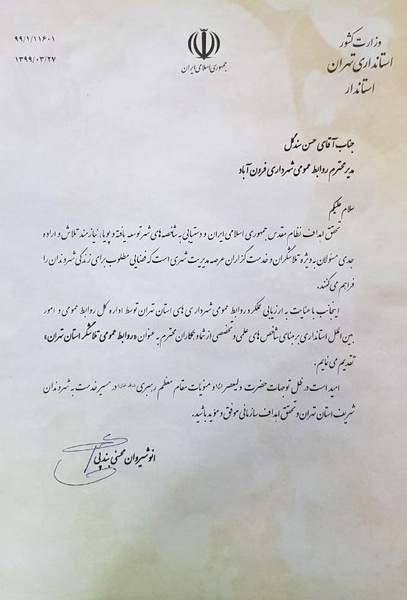 ۹۹/۱/۱۱۶۰۱
۱۳۹۹/۰۳/۲۷
جمهوری اسلامی ایران
وزارت کشور
استانداری تهران
استاندار
جناب آقای حسن سندگل
مدیر محترم روابط عمومی شهرداری فرون آباد
سلام علیکم
تحقق اهداف نظام مقدس جمهوری اسلامی ایران و دستیابی به شاخصه های شهر توسعه یافته و پویا، نیازمند تلاش و اراده
جدی مسئولان به ویژه تلاشگران و خدمت گزاران عرصه مدیریت شهری است که فضایی مطلوب برای زندگی شهروندان را
فراهم می کنند.
اینجانب با عنایت به ارزیابی عملکرد روابط عمومی شهرداری های استان تهران توسط اداره کل روابط عمومی و امور
بین الملل استانداری بر مبنای شاخص های علمی و تخصصی از شما و همکاران محترم به عنوان «روابط عمومی تلاشگر استان تهران»
تقدیر می نمایم.
امید است در ظل توجهات حضرت ولیعصر و منویات مقام معظم رهبری در مسیر خدمت به شهروندان
شریف استان تهران و تحقق اهداف سازمانی موفق و موید باشید.
انوشیروان محسنی بندپی